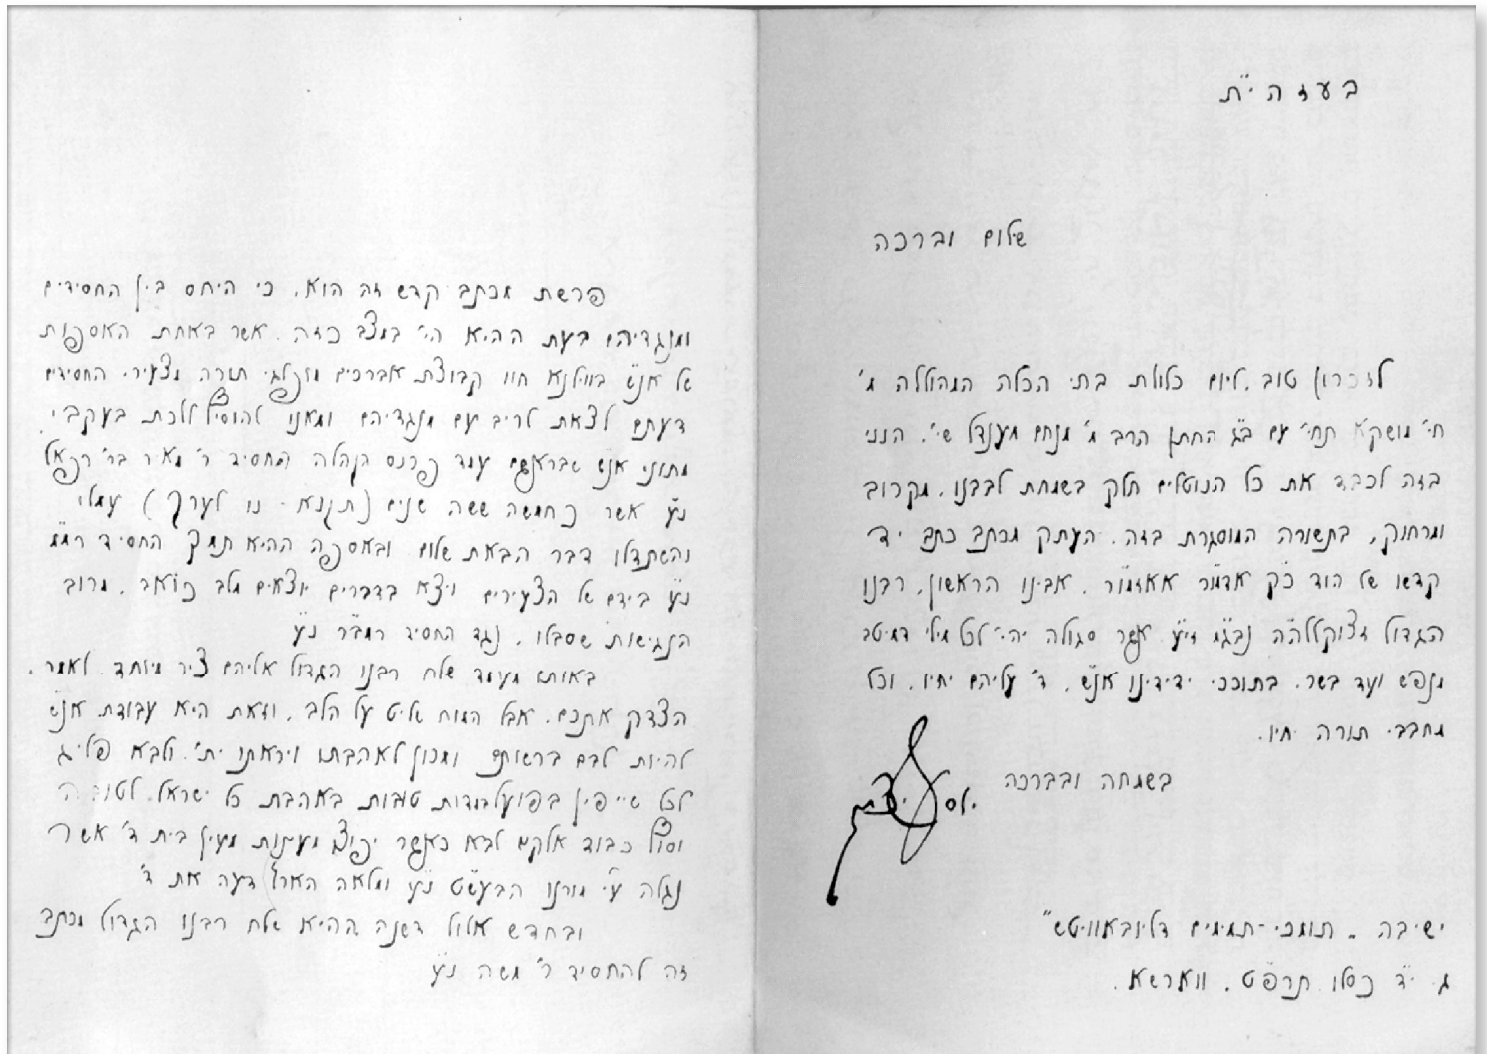 בעזהי"ת
שלום וברכה
לזכרון טוב, ליום כלולת בתי הכלה המהוללה מ'
חי' מושקא תחי' עם ב"ג החתן הרב מ' מנחם מענדל שי', הנני
בזה לכבד את כל הנוטלים חלק בשמחת לבבנו, מקרוב
ומרחוק, בתשורה המוסגרת בזה, העתק מכתב כתב יד
קדשו של הוד כ"ק אדמו"ר אאזמו"ר, אבינו הראשון, רבנו
הגדול זצוקללה"ה נבג"מ זי"ע אשר סגולה יהי' לכל מילי דמיטב
מנפש ועד בשר, בתוככי ידידינו אנ"ש, ד' עליהם יחיו, וכל
מחבבי תורה יחיו.
בשמחה ובברכה
ישיבה "תומכי-תמימים דליובאוויטש"
ג' י"ד כסלו תרפ"ט, ווארשא.
פרשת מכתב קדש זה הוא, כי היחס בין החסידים
ומנגדיהם בעת ההיא הי' במצב כזה, אשר באחת האסיפות
של אנ"ש בווילנא חוו קבוצת אברכים מופלגי תורה מצעירי החסידים
דעתם לצאת לריב עם מנגדיהם ומאנו להוסיף ללכת בעקבי
מתוני אנ"ש שבראשם עמד פרנס הקהלה החסיד ר' מאיר בר' רפאל
נ"ע אשר כחמשה ששה שנים (תקנא - נו לערך) עמלו
והשתדלו דבר הבאת שלום ובאסיפה ההיא תמך החסיד רמ"מ
נ"ע בידם של הצעירים ויצא בדברים יוצאים מלב כואב, מרוב
הנגישות שסבלו, נגד החסיד רמב"ר נ"ע
באותו מעמד שלח רבנו הגדול אליהם ציר מיוחד לאמר,
הצדק אתכם, אבל המוח שליט על הלב, וזאת היא עבודת אנ"ש
להיות לבם ברשותם ומכון לאהבתו ויראתו ית', ולבא פליג
לכל שייפין בפועל במדות טובות באהבת כל ישראל לטובה
וסוף כבוד אלקים לבא כאשר יפוצו מעינות מעין בית ד' אשר
נגלה ע"י מורנו הבעש"ט נ"ע ומלאה הארץ דעה את ד'
ובחדש אלול דשנה ההיא שלח רבנו הגדול מכתב
זה להחסיד ר' משה נ"ע